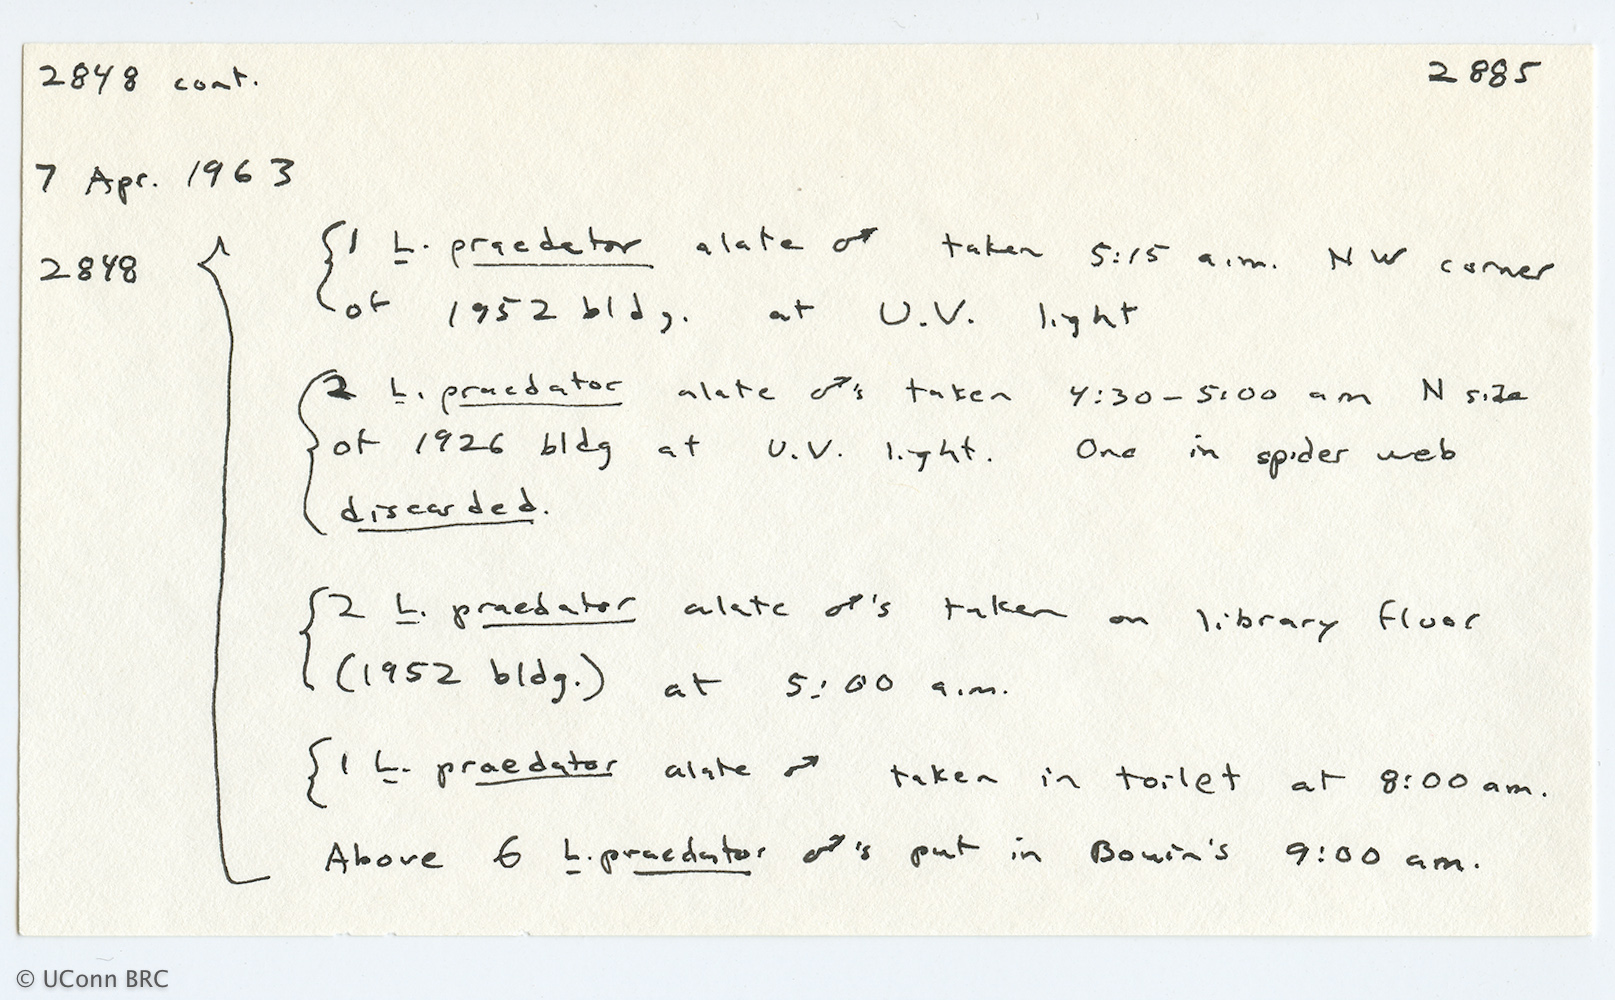 2848 cont. 2885
7 Apr. 1963
2848 { 1 L. praedator alate ♂ taken 5:15 a.m. NW corner
of 1952 bldg. at U.V. light
2 L. praedator alate ♂'s taken 4:30-5:00 am N side
of 1926 bldg at U.V. light. One in spider web
discarded.
{ 2 L. praedator alate ♂'s taken on library floor
(1952 bldg.) at 5:00 a.m.
{ 1 L. praedator alate ♂ taken in toilet at 8:00 am.
Above 6 L. praedator ♂'s put in Bouin's 9:00 am.
© UConn BRC